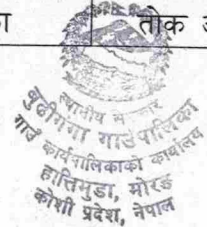 का
तोक अ
स्थानीय सरकार
बुढीगंगा गाउँपालिका
गाउँ कार्यपालिकाको कार्यालय
हात्तिमुडा, मोरङ
कोशी प्रदेश, नेपाल